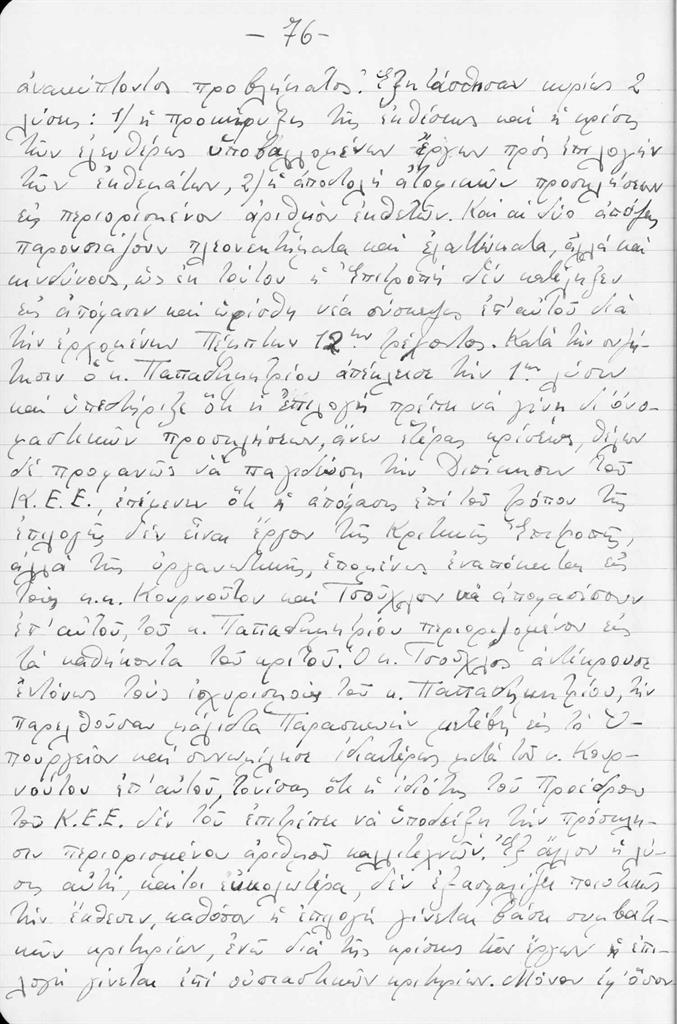 - 76 -
ἀνακύπτοντος προβλήματος. Ἐξητάσθησαν κυρίως 2
λύσεις: 1) ἡ προκήρυξις τῆς ἐκθέσεως καὶ ἡ κρίσις
τῶν ἐλευθέρως ὑποβαλλομένων ἔργων πρὸς ἐπιλογὴν
τῶν ἐκθεμάτων, 2) ἡ ἀποστολὴ ἀτομικῶν προσκλήσεων
εἰς περιορισμένον ἀριθμὸν ἐκθετῶν. Καὶ αἱ δύο ἀπόψεις
παρουσιάζουν πλεονεκτήματα καὶ ἐλαττώματα, ἀλλὰ καὶ
κινδύνους, ὡς ἐκ τούτου ἡ Ἐπιτροπὴ δὲν κατέληξεν
εἰς ἀπόφασιν καὶ ὡρίσθη νέα σύσκεψις ἐπ' αὐτοῦ διὰ
τὴν ἐρχομένην Πέμπτην 12ην τρέχοντος. Κατὰ τὴν συζή-
τησιν ὁ κ. Παπαδημητρίου ἀπέκλεισε τὴν 1ην λύσιν
καὶ ὑπεστήριξε ὅτι ἡ ἐπιλογὴ πρέπει νὰ γίνῃ δι' ὀνο-
μαστικῶν προσκλήσεων, ἄνευ ἑτέρας κρίσεως, θέλων
δὲ προφανῶς νὰ παγιδεύσῃ τὴν Διοίκησιν τοῦ
Κ.Ε.Ε., ἐπέμενεν ὅτι ἡ ἀπόφασις ἐπὶ τοῦ τρόπου τῆς
ἐπιλογῆς δὲν εἶναι ἔργον τῆς Κριτικῆς Ἐπιτροπῆς,
ἀλλὰ τῆς ὀργανωτικῆς, ἑπομένως ἐναπόκειται εἰς
τοὺς κ.κ. Κουρνοῦτον καὶ Τσοῦχλον νὰ ἀποφασίσουν
ἐπ' αὐτοῦ, τοῦ κ. Παπαδημητρίου περιοριζομένου εἰς
τὰ καθήκοντα τοῦ κριτοῦ. Ὁ κ. Τσοῦχλος ἀντέκρουσε
ἐντόνως τοὺς ἰσχυρισμοὺς τοῦ κ. Παπαδημητρίου, τὴν
παρελθοῦσαν μάλιστα Παρασκευὴν μετέβη εἰς τὸ Ὑ-
πουργεῖον καὶ συνωμίλησε ἰδιαιτέρως μετὰ τοῦ κ. Κουρ-
νούτου ἐπ' αὐτοῦ, τονίσας ὅτι ἡ ἰδιότης τοῦ Προέδρου
τοῦ Κ.Ε.Ε. δὲν τοῦ ἐπιτρέπει νὰ ὑποδείξῃ τὴν πρόσκλη-
σιν περιορισμένου ἀριθμοῦ καλλιτεχνῶν. Ἐξ ἄλλου ἡ λύ-
σις αὐτή, καίτοι εὐκολωτέρα, δὲν ἐξασφαλίζει ποιοτικῶς
τὴν ἔκθεσιν, καθόσον ἡ ἐπιλογὴ γίνεται βάσει συμβατι-
κῶν κριτηρίων, ἐνῶ διὰ τῆς κρίσεως τῶν ἔργων ἡ ἐπι-
λογὴ γίνεται ἐπὶ οὐσιαστικῶν κριτηρίων. Μόνον ἐφ' ὅσον